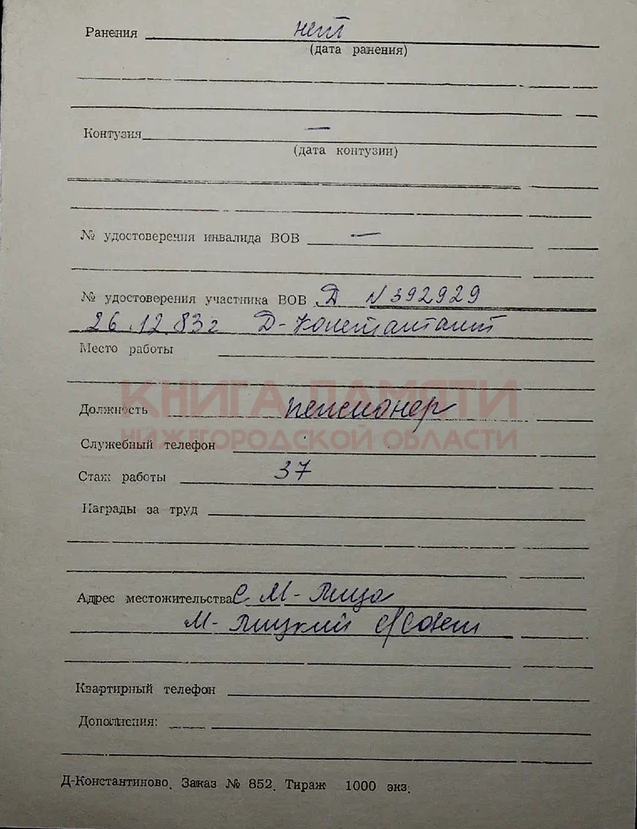 Ранения нет
(дата ранения)
Контузия —
(дата контузии)
№ удостоверения инвалида ВОВ —
№ удостоверения участника ВОВ Д №392929
26.12.83г Д-Константин
Место работы
КНИГА ПАМЯТИ
Должность пенсионер
НИЖЕГОРОДСКОЙ ОБЛАСТИ
Служебный телефон
Стаж работы 37
Награды за труд
Адрес местожительства с. М-Пица
М-Пицкий с/совет
Квартирный телефон
Дополнения:
Д-Константиново. Заказ № 852. Тираж 1000 экз.